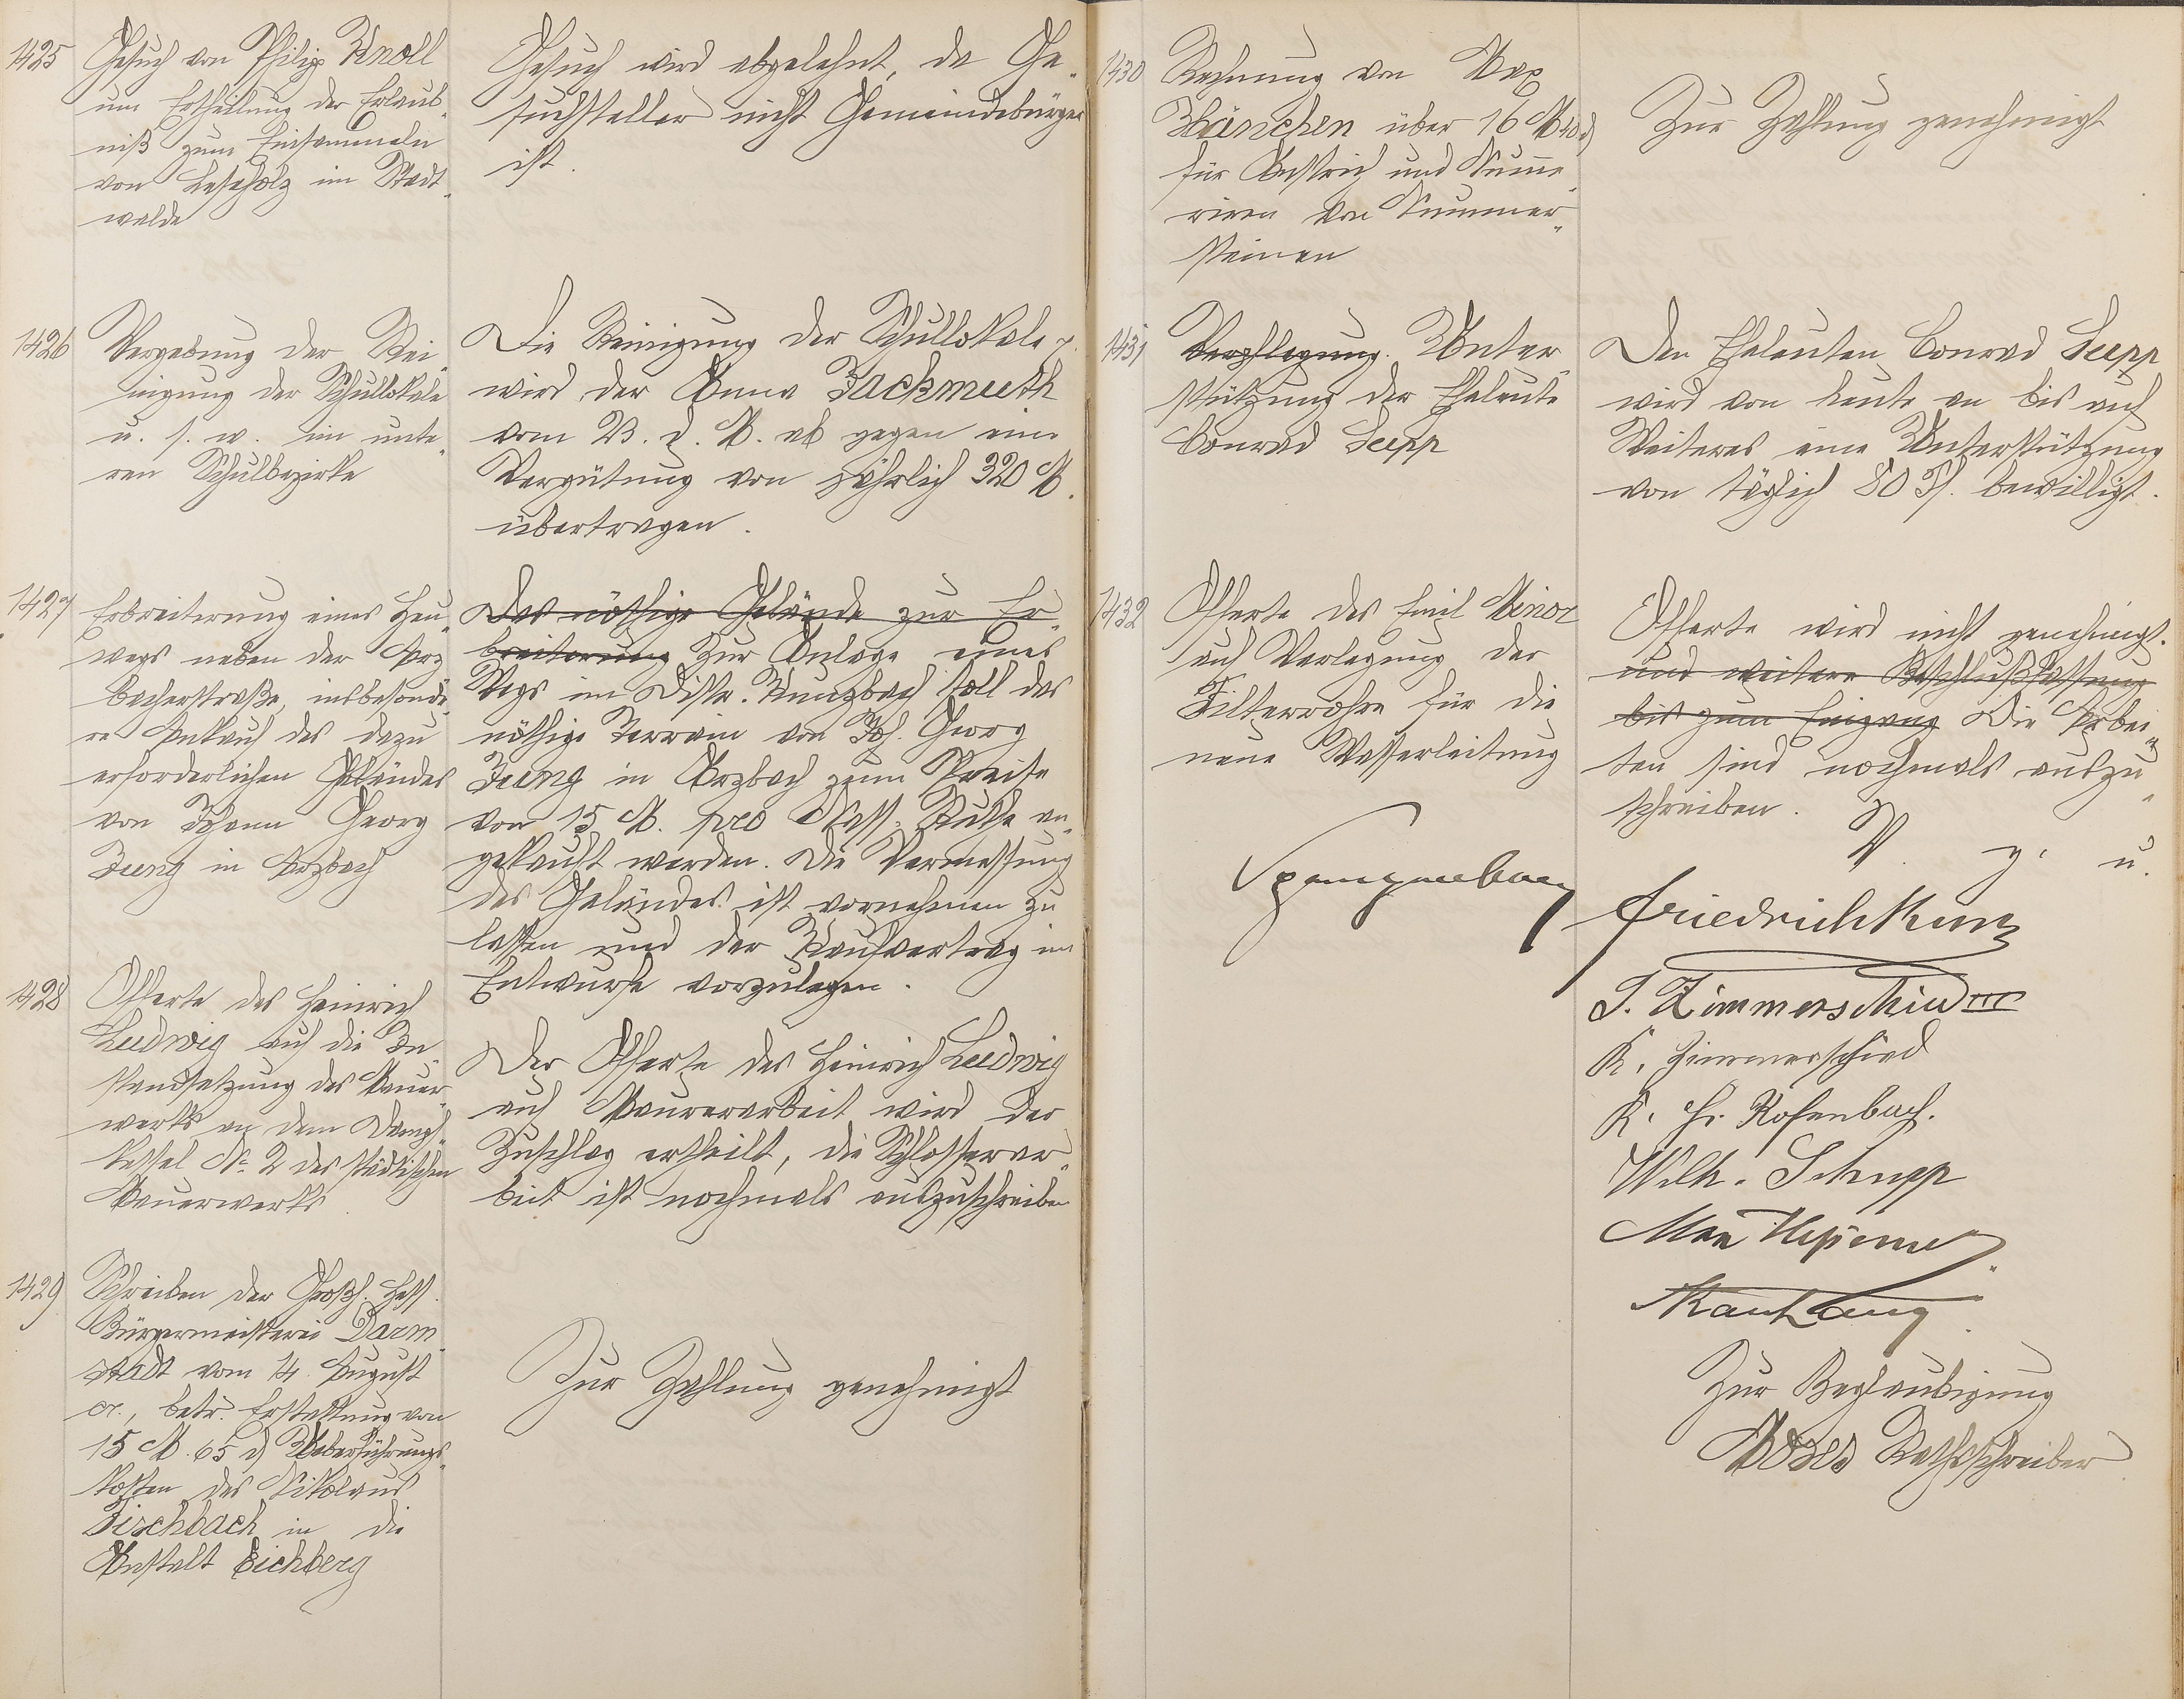 1425
Gesuch von Philipp Knoll
um Ertheilung der Erlaub-
niß zum Einsammeln
von Leseholz im Stadt-
walde
Gesuch wird abgelehnt, da Ge-
suchsteller nicht Gemeindebürger
ist.
1426
Vergebung der Rei-
nigung der Schullokale
u. s. w. im unte-
ren Schulbezirke
Die Reinigung der Schullokale p.
wird der Anna Zackmuth
vom 23. d. M. ab gegen eine
Vergütung von jährlich 320 M.
übertragen.
1427
Erbreiterung eines Heu-
wegs neben der Arz-
bacherstraße, insbesonde-
re Ankauf des dazu
erforderlichen Geländes
von Johann Georg
Jung in Arzbach
Das nöthige Gelände zur Er-
breiterung Zur Anlage eines
Wegs im Distr. Kunzbach soll das
nöthige Terrain von Joh. Georg
Jung in Arzbach zum Preise
von 15 M. pro Nass. Ruthe an-
gekauft werden. Die Vermessung
des Geländes ist vornehmen zu
lassen und der Kaufvertrag im
Entwurfe vorzulegen.
1428
Offerte des Heinrich
Ludwig auf die In-
standsetzung des Mauer-
werks an dem Dampf-
kessel No 2 des städtischen
Mauerwerks
Der Offerte des Heinrich Ludwig
auf Maurerarbeit wird der
Zuschlag ertheilt, die Schlosserar-
beit ist nochmals auszuschreiben
1429
Schreiben der Großh. Hess.
Bürgermeisterei Darm-
stadt vom 14. August
cr., betr. Erstattung von
15 M. 65 d Ueberführungs-
kosten des Nikolaus
Fischbach in die
Anstalt Eichberg
Zur Zahlung genehmigt
1430
Rechnung von Max
Hänchen über 16 M 40 d
für Anstrich und Numme-
riren von Nummer-
steinen
Zur Zahlung genehmigt
1431
Verpflegung. Unter-
stützung der Eheleute
Conrad Seepp
Den Eheleuten Conrad Seepp
wird von heute an bis auf
Weiteres eine Unterstützung
von täglich 80 Pf. bewilligt.
1432
Offerte des Emil Minor
auf Verlegung der
Filterrohre für die
neue Wasserleitung
Offerte wird nicht genehmigt.
und weitere Beschlußfassung
bis zum Eingang Die Arbei-
ten sind nochmals auszu-
schreiben.
V. g. u.
Spangenberg
Friedrich Kunz
S. Zimmerschied III
K. Zimmerschied
K. Hr. Rosenbach.
Wilh. Schupp
Karl Lang
Zur Beglaubigung
Moses Rathsschreiber